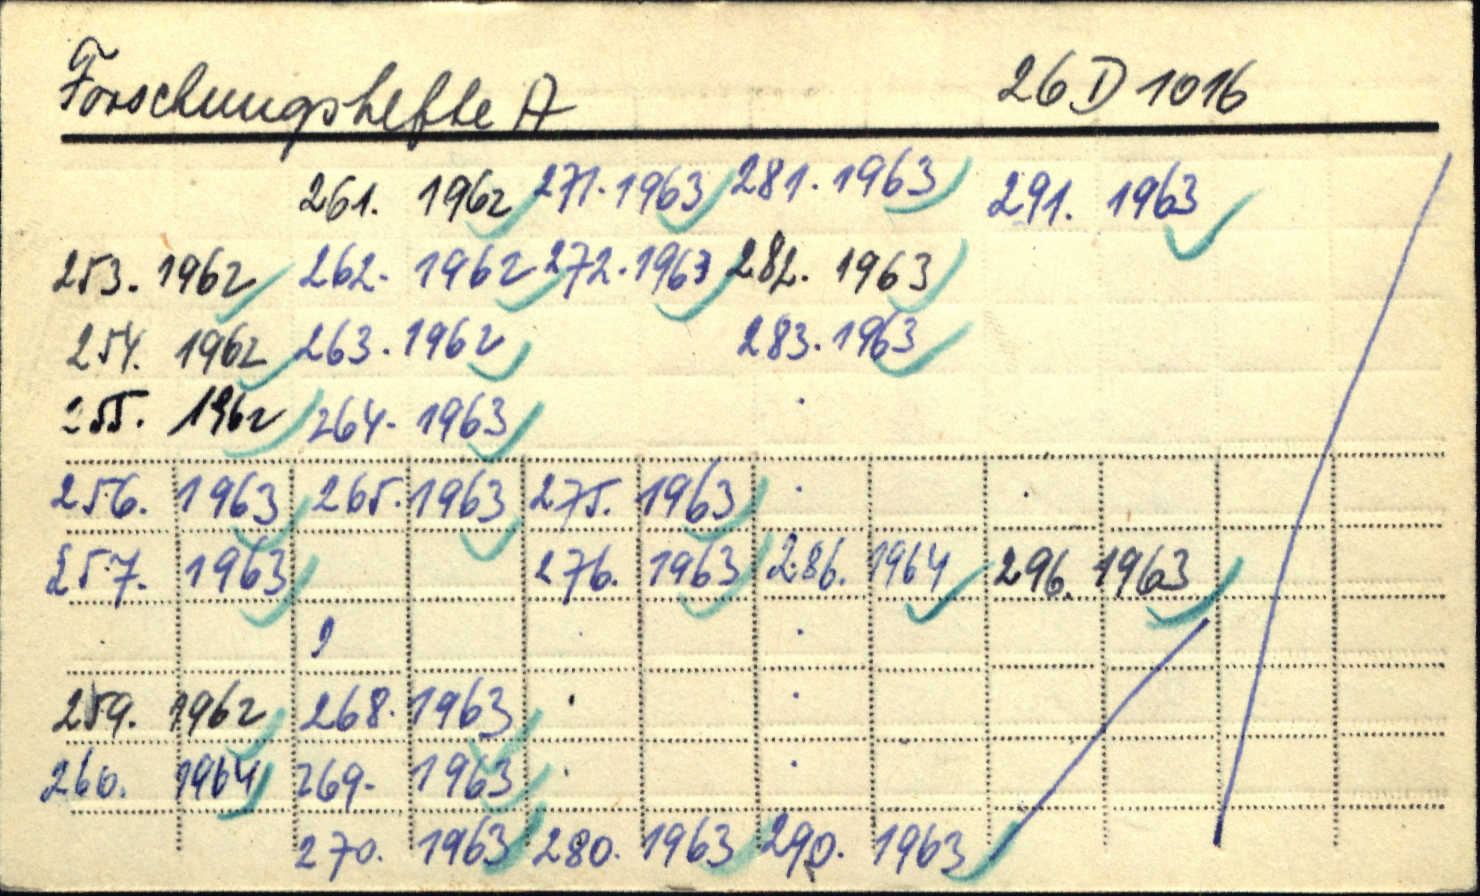 Forschungshefte A 26 D 1016
261. 1962 271. 1963 281. 1963 291. 1963
253. 1962 262. 1962 272. 1963 282. 1963
254. 1962 263. 1962 283. 1963
255. 1962 264. 1963
256. 1963 265. 1963 275. 1963
257. 1963 276. 1963 286. 1964 296. 1963
259. 1962 268. 1963
260. 1964 269. 1963
270. 1963 280. 1963 290. 1963